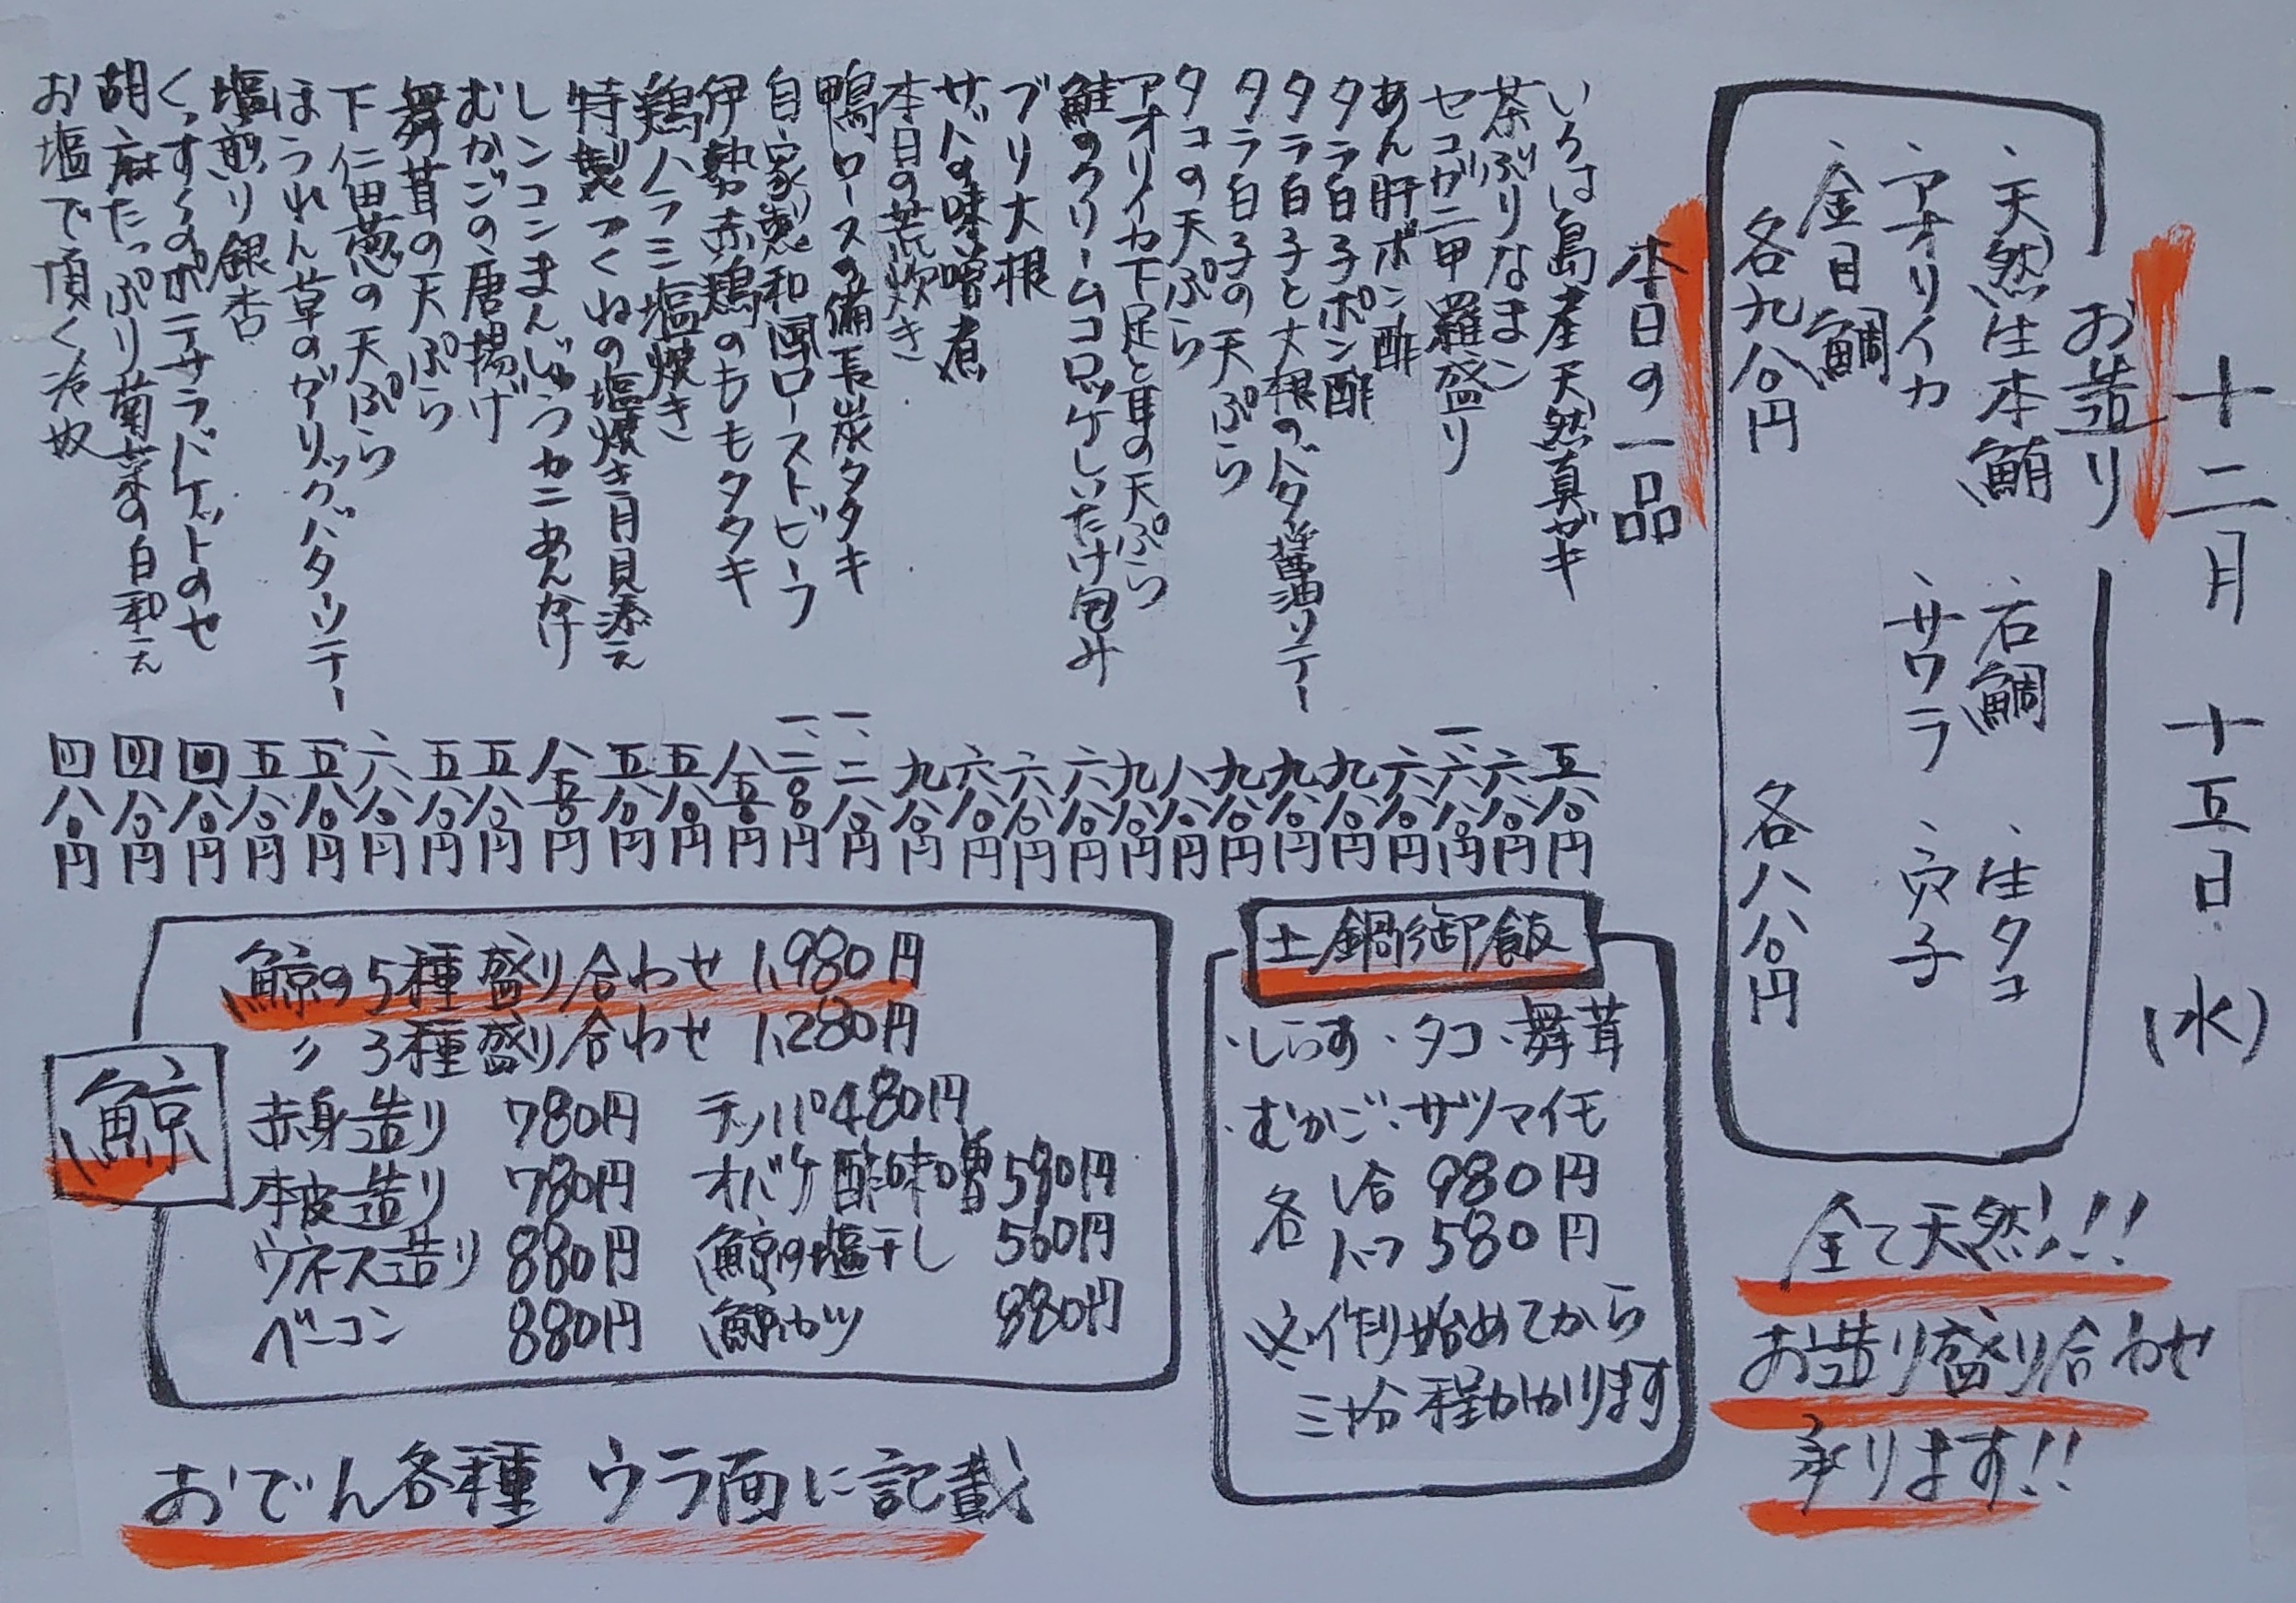 十二月 十五日 (水)
お造り
、天然生本鮪 、石鯛 、生タコ
、アオリイカ 、サワラ 、穴子
、金目鯛
各九八〇円 各八八〇円
全て天然!!!
お造り盛り合わせ
承ります!!
本日の一品
いろは島産天然真ガキ 五八〇円
茶ぶりなまこ 六八〇円
セコガニ甲羅盛り 一、六八〇円
あん肝ポン酢 六八〇円
タラ白子ポン酢 九八〇円
タラ白子と大根のバター醤油ソテー 九八〇円
タラ白子の天ぷら 九八〇円
タコの天ぷら 八八〇円
アオリイカ下足と耳の天ぷら 九八〇円
鮭のクリームコロッケしいたけ包み 六八〇円
ブリ大根 六八〇円
サバの味噌煮 六八〇円
本日の荒炊き 九八〇円
鴨ロースの備長炭タタキ 一、二八〇円
自家製和風ローストビーフ 一、二八〇円
伊勢赤鶏のももタタキ 八五〇円
鶏ハラミ塩焼き 五八〇円
特製つくねの塩焼き月見添え 五八〇円
レンコンまんじゅうカニあんかけ 八五〇円
むかごの唐揚げ 五八〇円
舞茸の天ぷら 五八〇円
下仁田葱の天ぷら 六八〇円
ほうれん草のガーリックバターソテー 五八〇円
塩煎り銀杏 五八〇円
くずし豆腐のポテサラバケットのせ 四八〇円
胡麻たっぷり菊菜の白和え 四八〇円
お塩で頂く冷奴 四八〇円
土鍋御飯
・しらす ・タコ ・舞茸
・むかご ・サツマイモ
各 1合 980円
ハーフ 580円
※作り始めてから
三十分程かかります
鯨
鯨の5種盛り合わせ 1,980円
〃 3種盛り合わせ 1,280円
赤身造り 780円 テッパ 480円
本皮造り 780円 オバケ酢味噌 590円
ウネス造り 880円 鯨の塩干し 560円
ベーコン 880円 鯨カツ 880円
おでん各種 ウラ面に記載